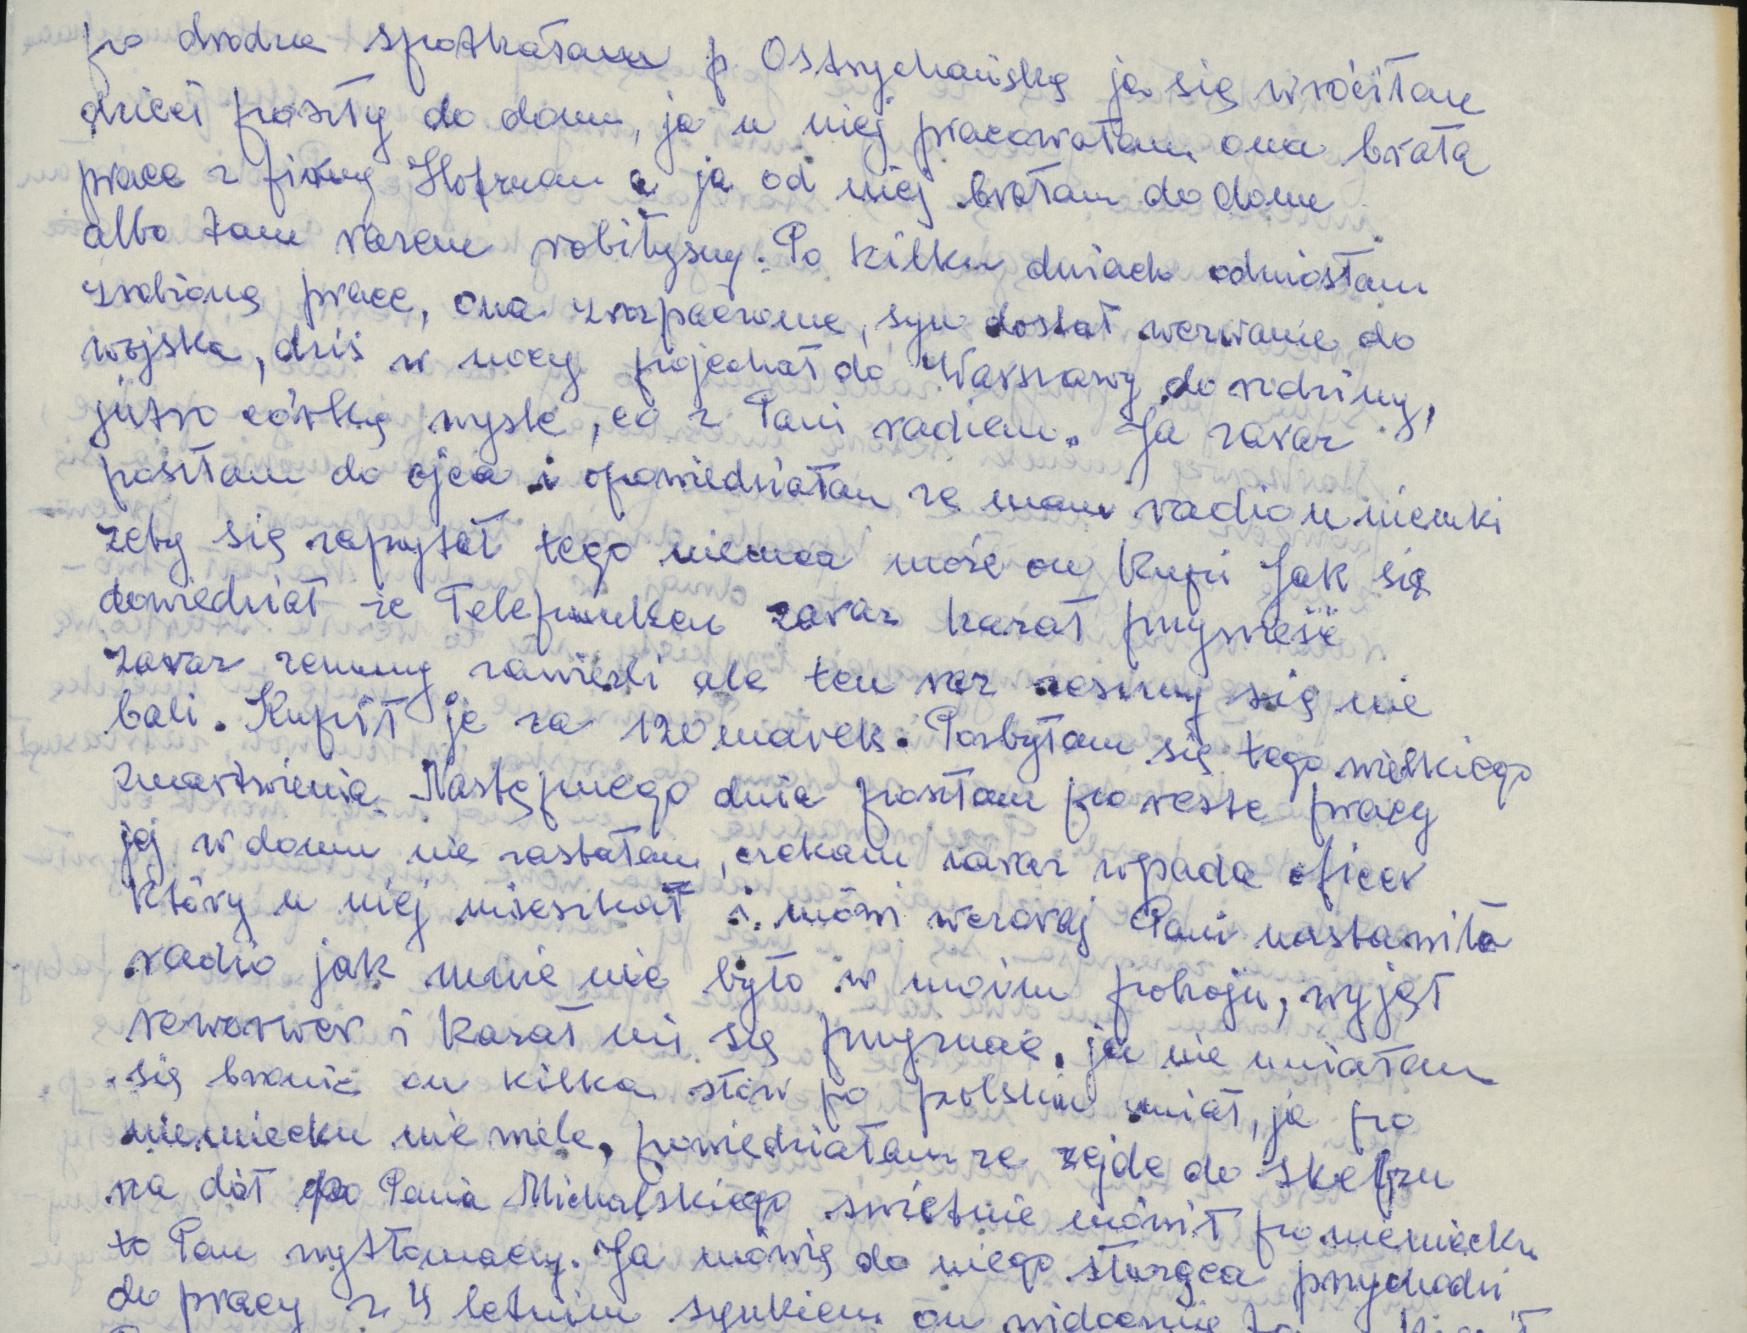 po drodze spotkałam p Ostrychańską ja się wróciłam
dzieci poszły do domu, ja u niej pracowałam ona brała
prace z firmy Hofman a ja od niej brałam do domu
albo tam razem robiłyśmy. Po kilku dniach odniosłam
zrobioną prace, ona zrozpaczona, syn dostał wezwanie do
wojska, dziś w nocy pojechał do Warszawy do rodziny,
jutro córkę wyśle, co z Pani radiem. Ja zaraz
poszłam do ojca i opowiedziałam ze mam radio u niemki
zeby się zapytał tego niemca może on kupi Jak się
dowiedział ze Telefunken zaraz kazał przynieść
zaraz zemmy zawieźli ale ten raz zesmy się nie
bali. Kupił je za 120 marek. Pozbyłam się tego wielkiego
zmartwienia. Następnego dnia poszłam po reszte pracy
jej w domu nie zastałam, czekam zaraz wpada oficer
który u niej mieszkał i mówi wczoraj Pani nastawiła
radio jak mnie nie było w moim pokoju, wyjął
reworwer i kazał mi się przyznać. ja nie umiałam
się bronić on kilka słów po polsku umiał, ja po
niemiecku nie wiele, powiedziałam ze zejde do sklepu
na dół do Pana Michalskiego świetnie mówił po niemiecku
to Pan wytłomaczy. Ja mówię do niego służąca przychodzi
do pracy z 4 letnim synkiem on widocznie